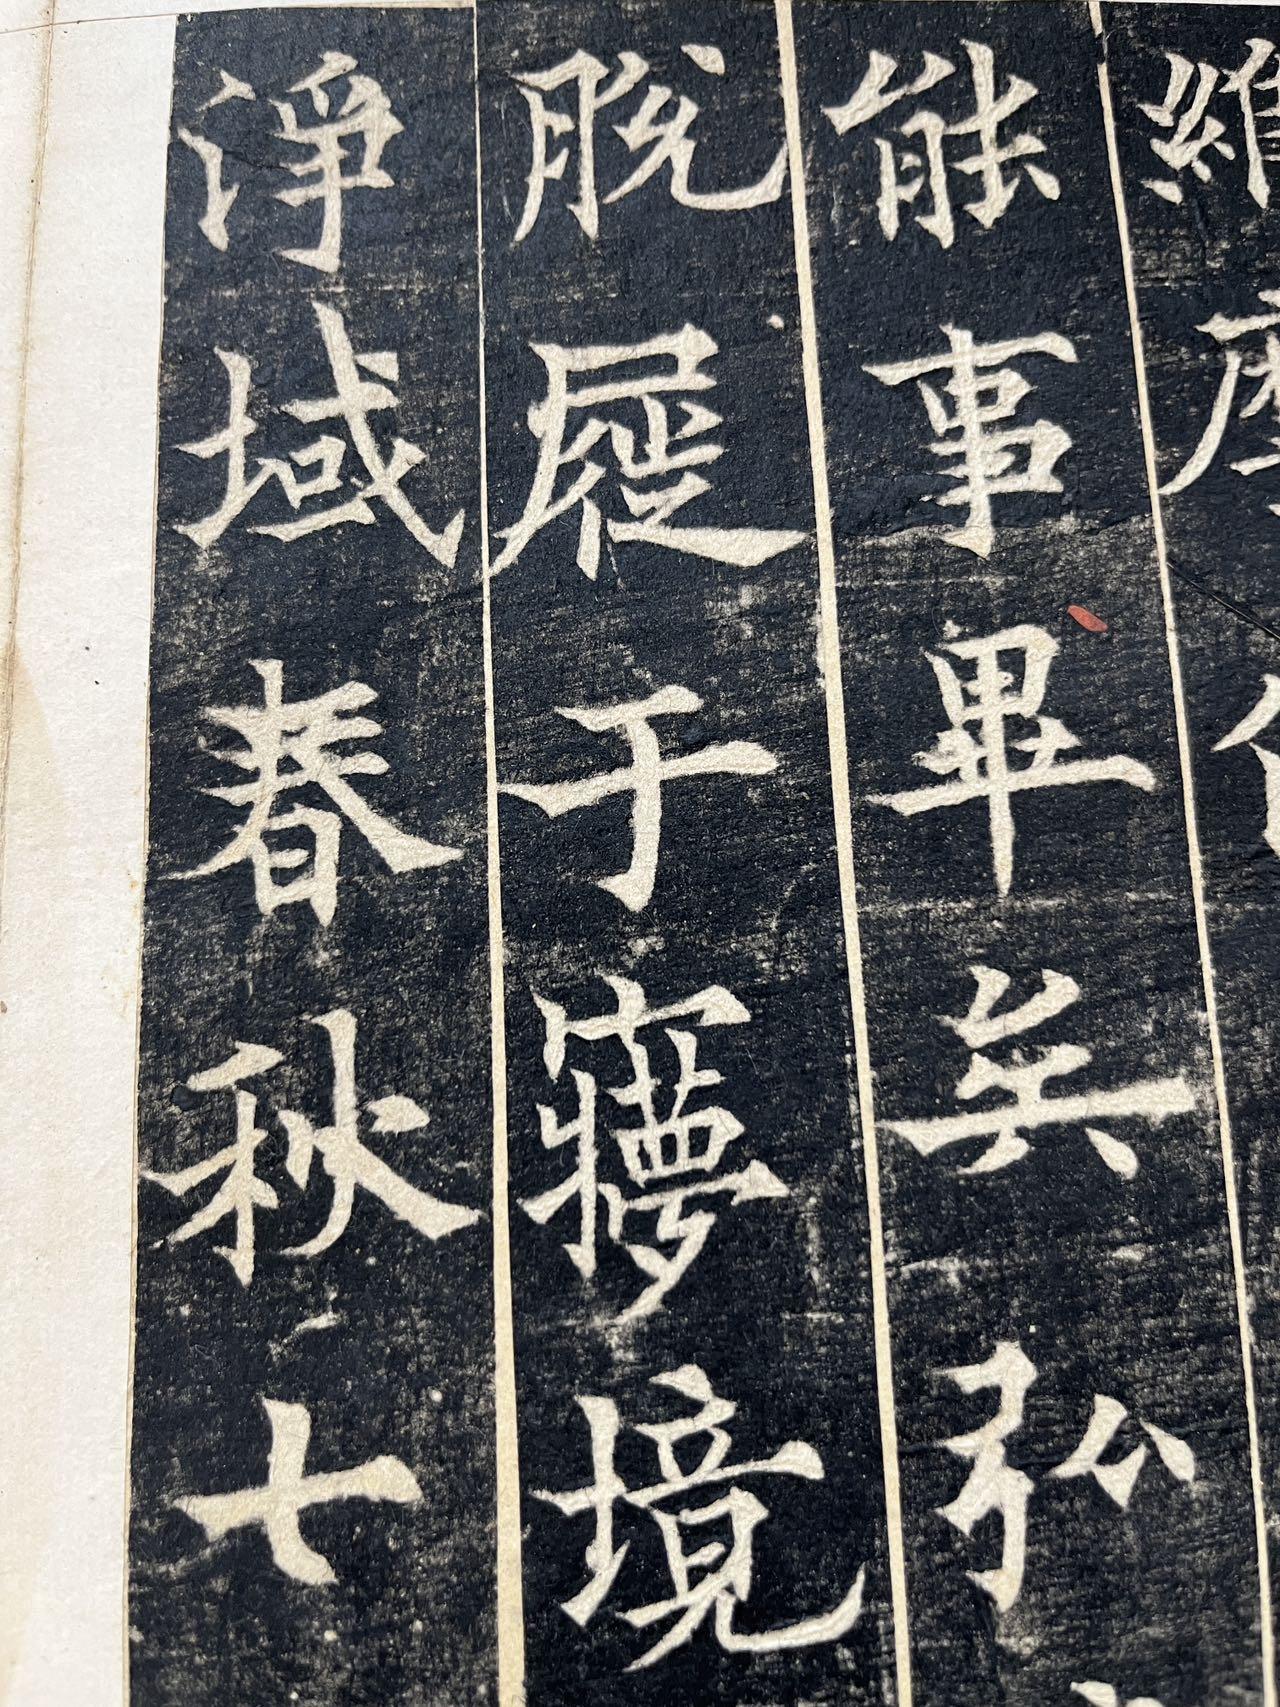 維摩
能事畢矣弘
脫屣于㝱境
淨域春秋七